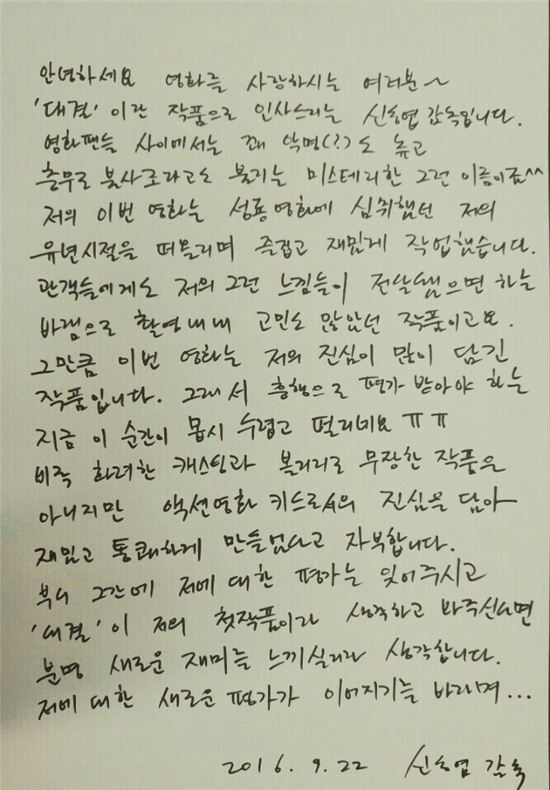 안녕하세요 영화를 사랑하시는 여러분~
'대결' 이란 작품으로 인사드리는 신동엽 감독입니다.
영화팬들 사이에서는 꽤 악명(?)도 높고
충무로 불사조라고도 불리는 미스테리한 그런 이름이죠^^
저의 이번 영화는 성룡영화에 심취했던 저의
유년시절을 떠올리며 즐겁고 재밌게 작업했습니다.
관객들에게도 저의 그런 느낌들이 전달됐으면 하는
바램으로 촬영내내 고민도 많았던 작품이고요.
그만큼 이번 영화는 저의 진심이 많이 담긴
작품입니다. 그래서 흥행으로 평가 받아야 하는
지금 이 순간이 몹시 두렵고 떨리네요 ㅠㅠ
비록 화려한 캐스팅과 볼거리로 무장한 작품은
아니지만 액션영화 키드로서의 진심을 담아
재밌고 통쾌하게 만들었다고 자부합니다.
부디 그간에 저에 대한 평가는 잊어주시고
'대결' 이 저의 첫작품이라 생각하고 봐주신다면
분명 새로운 재미를 느끼실거라 생각합니다.
저에 대한 새로운 평가가 이어지기를 바라며...
2016. 9. 22 신동엽 감독